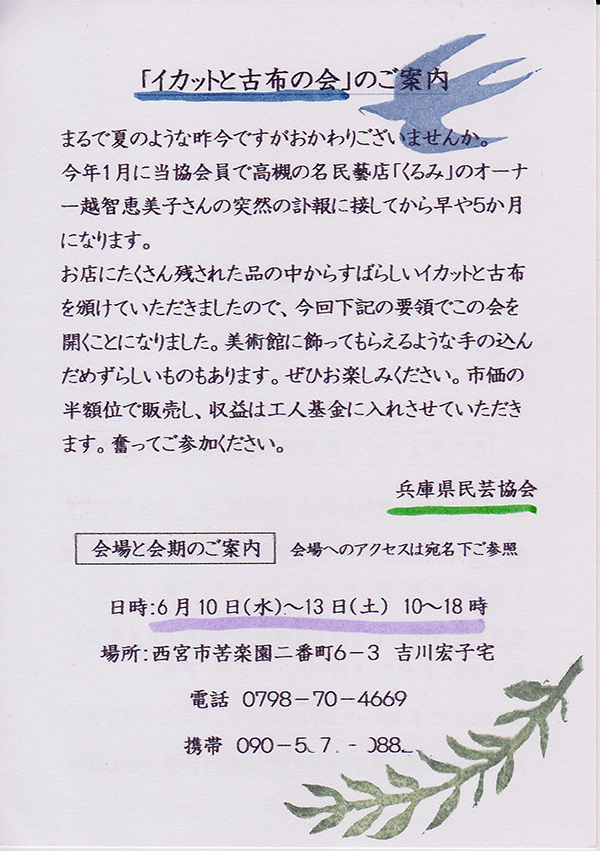 「イカットと古布の会」のご案内
まるで夏のような昨今ですがおかわりございませんか。
今年1月に当協会員で高槻の名民藝店「くるみ」のオーナ
ー越智恵美子さんの突然の訃報に接してから早や5か月
になります。
お店にたくさん残された品の中からすばらしいイカットと古布
を頒けていただきましたので、今回下記の要領でこの会を
開くことになりました。美術館に飾ってもらえるような手の込ん
だめずらしいものもあります。ぜひお楽しみください。市価の
半額位で販売し、収益は工人基金に入れさせていただき
ます。奮ってご参加ください。
兵庫県民芸協会
会場と会期のご案内 会場へのアクセスは宛名下ご参照
日時:6月10日(水)~13日(土) 10~18時
場所:西宮市苦楽園二番町6-3 吉川宏子宅
電話 0798-70-4669
携帯 090-